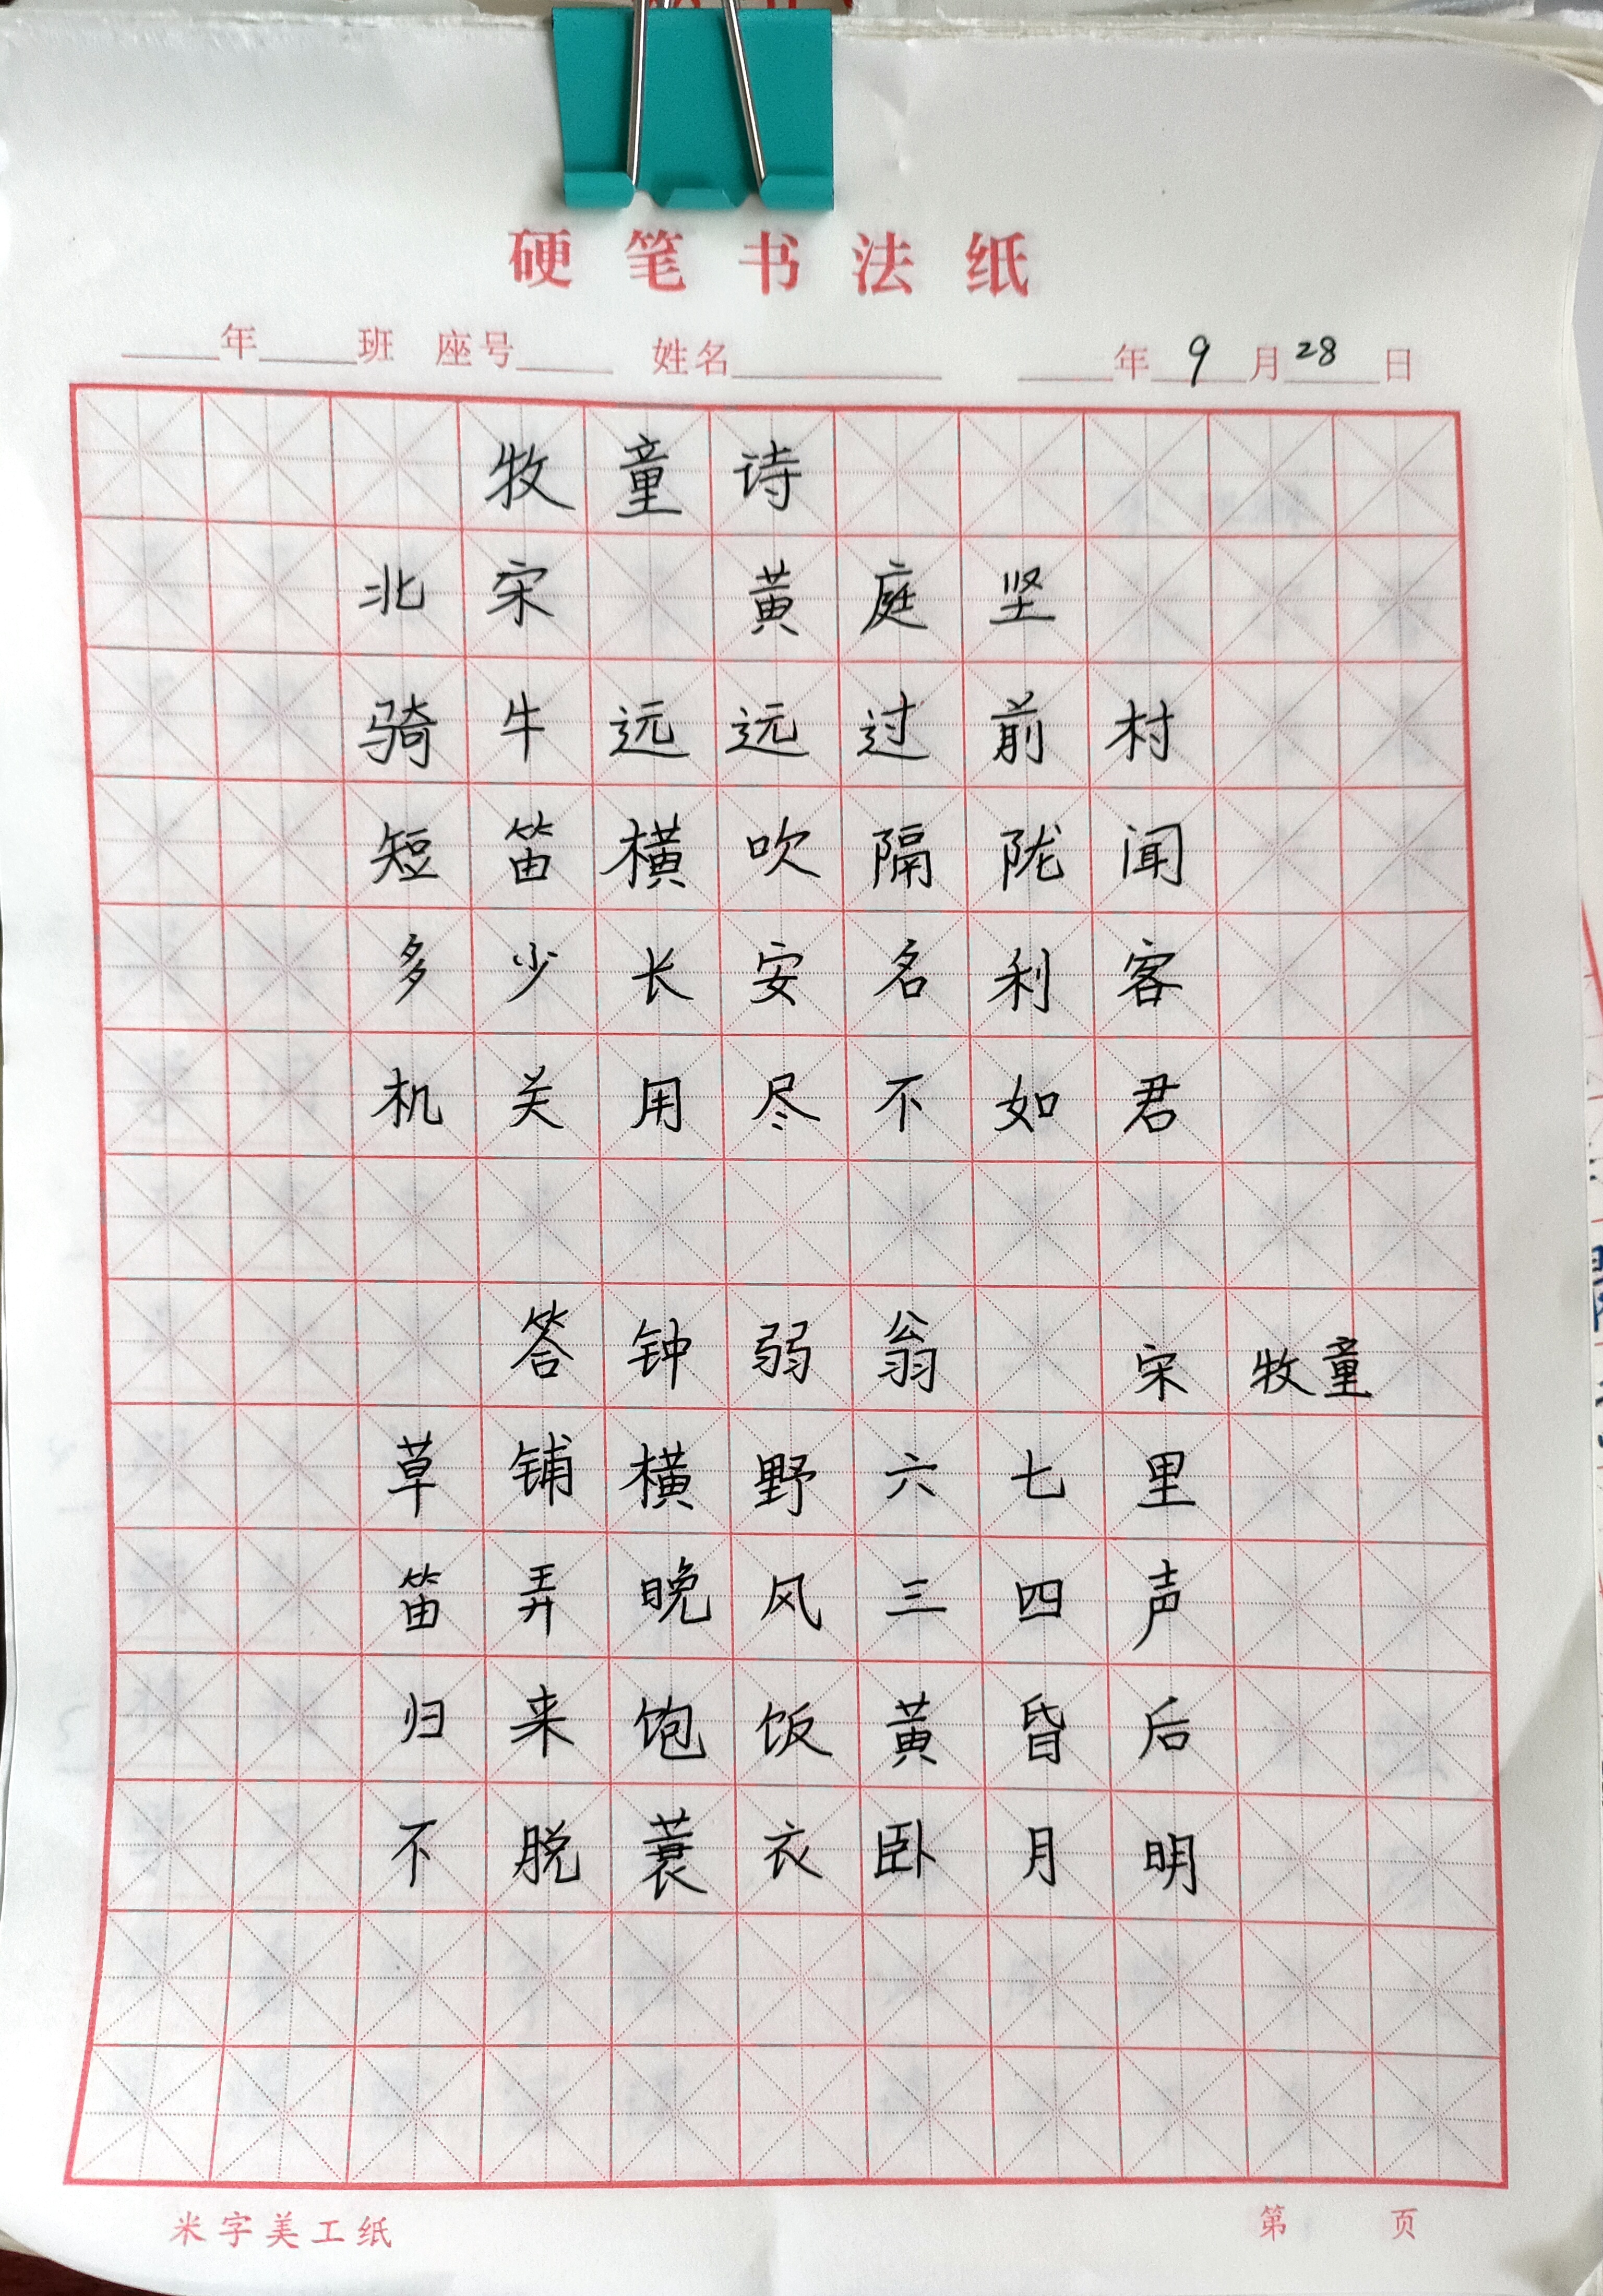 硬笔书法纸
年 班 座号 姓名 年 9 月 28 日
牧童诗
北宋 黄庭坚
骑牛远远过前村
短笛横吹隔陇闻
多少长安名利客
机关用尽不如君
答钟弱翁 宋 牧童
草铺横野六七里
笛弄晚风三四声
归来饱饭黄昏后
不脱蓑衣卧月明
米字美工纸 第 页